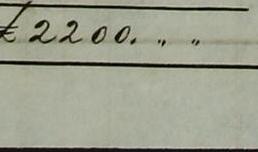 £2200. " "